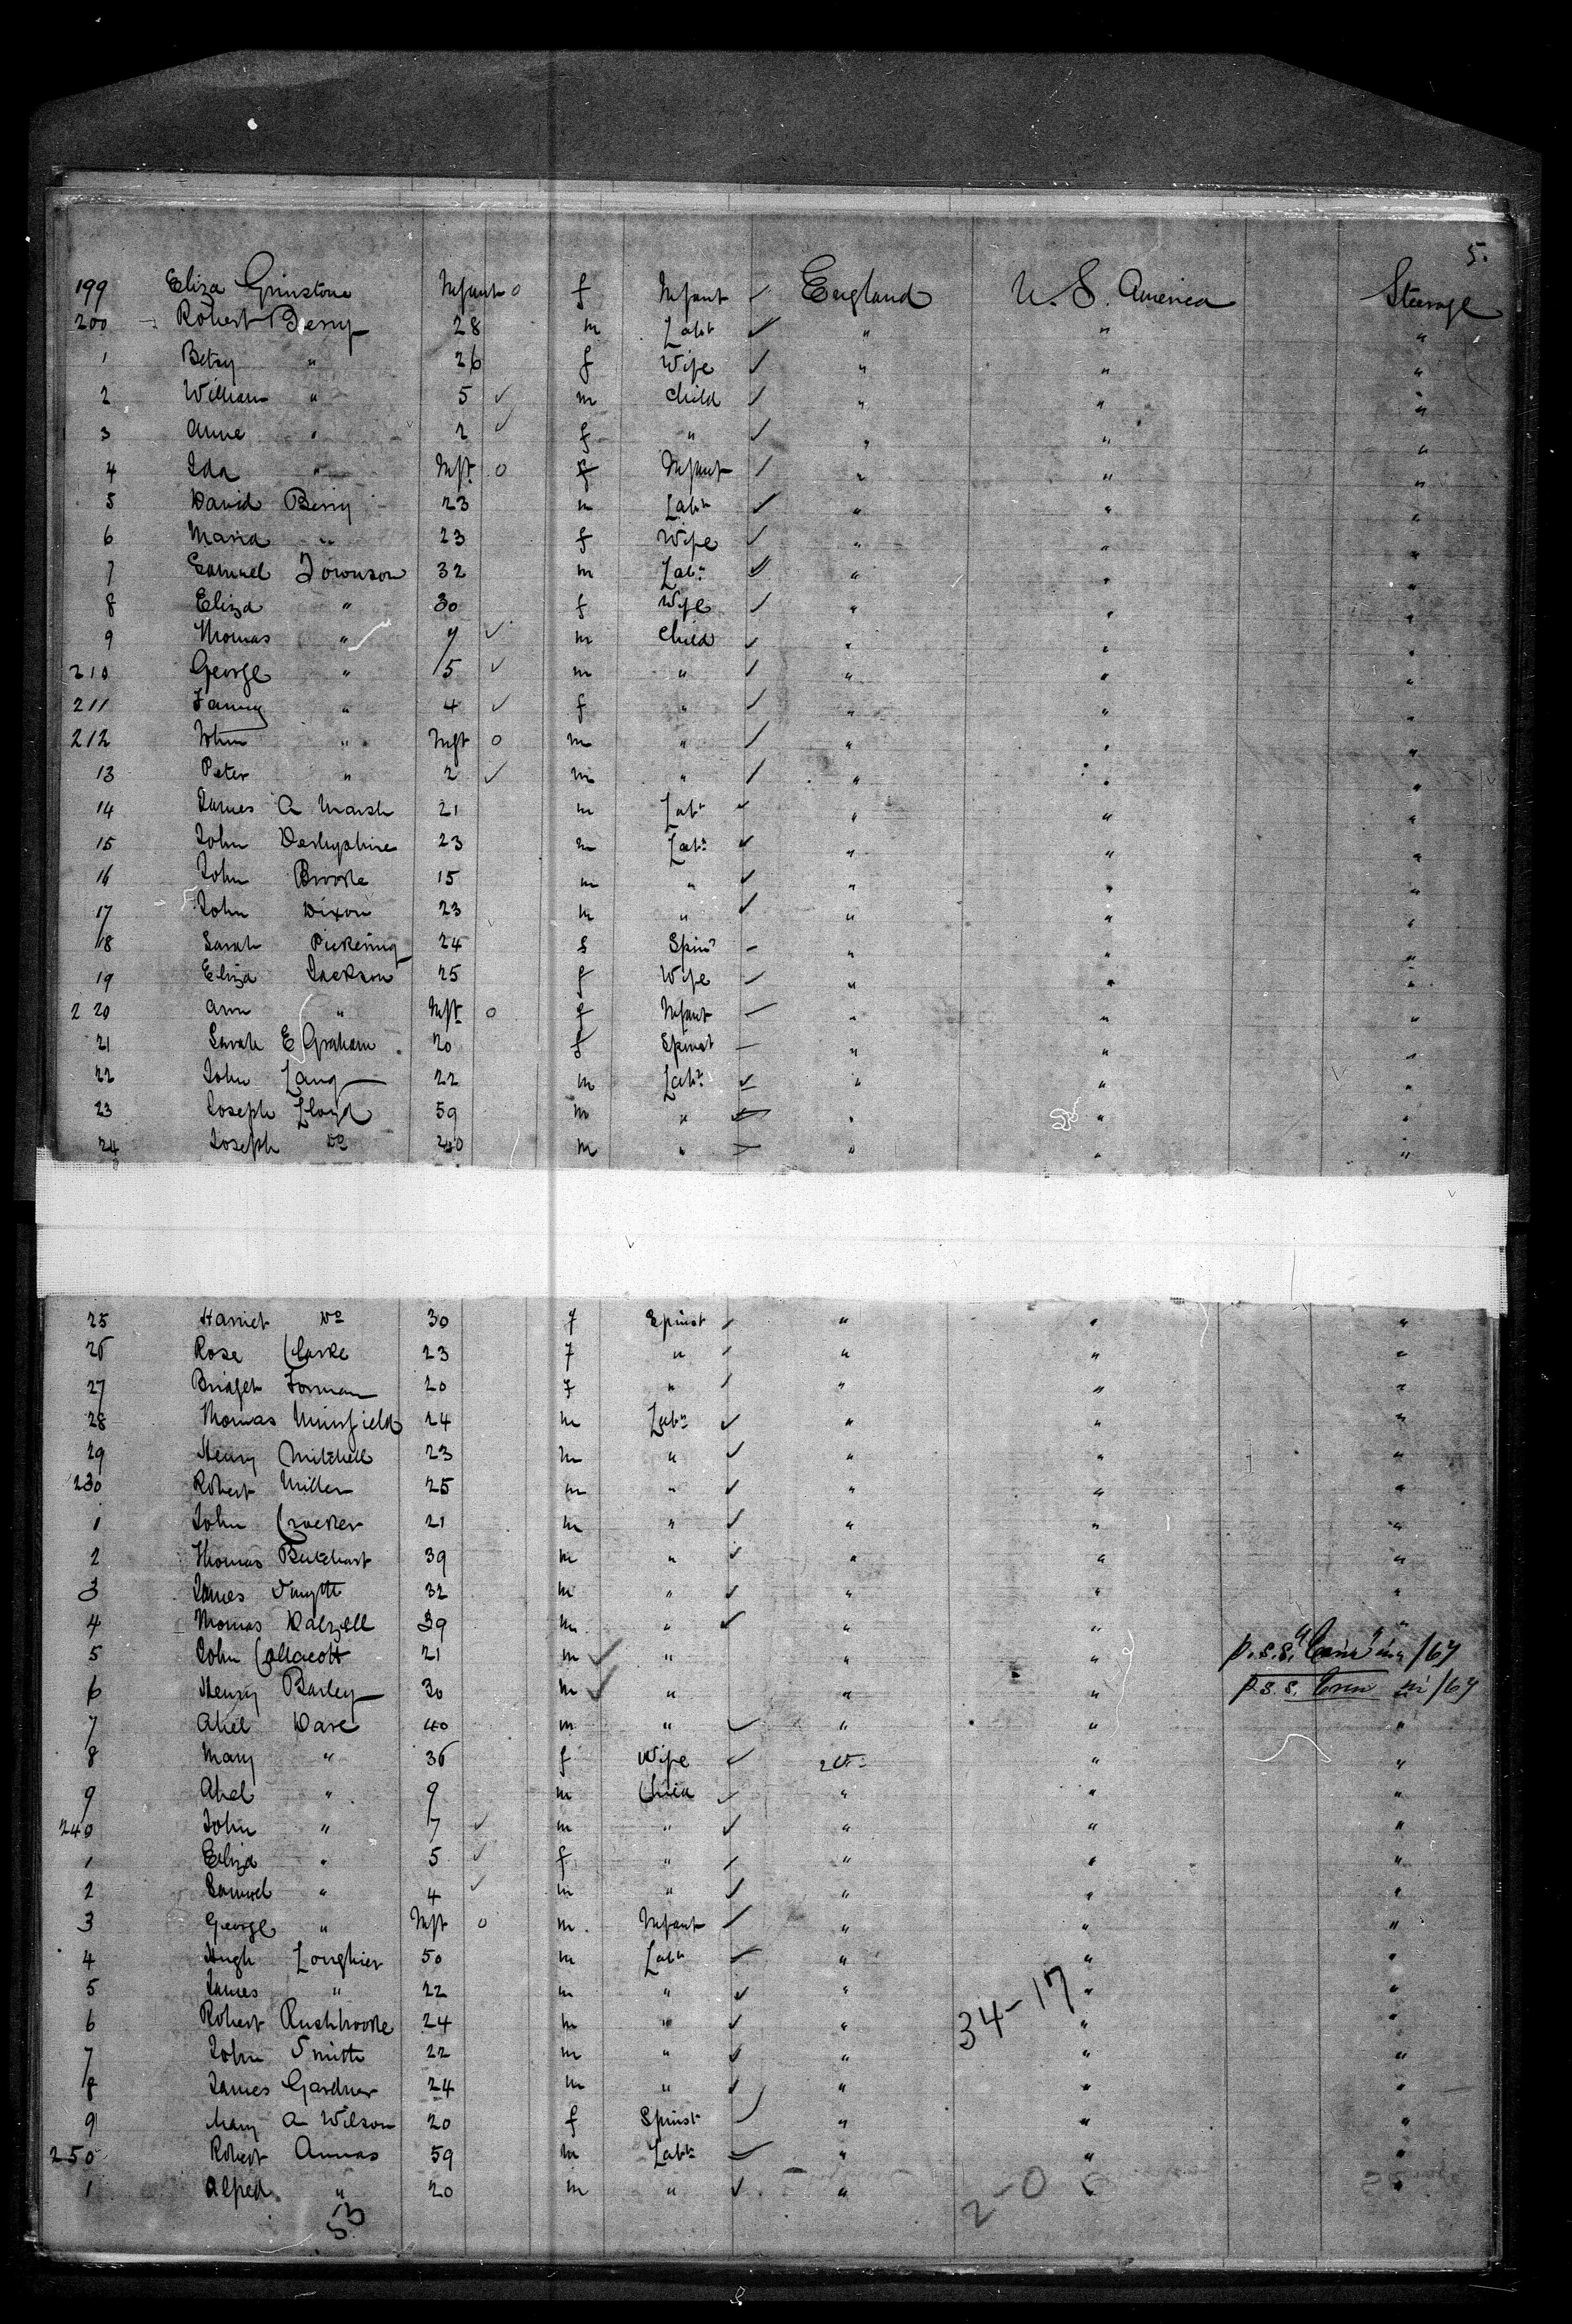 5.
199 Eliza Grinstone Infant 0 f Infant England U. S. America Steerage
200 Robert Berry 28 m Labr " " "
1 Betsy " 26 f Wife " " "
2 William " 5 m Child " " "
3 Anne " 2 f " " " "
4 Ida " Inft 0 f Infant " " "
5 David Berry 23 m Labr " " "
6 Maria " 23 f Wife " " "
7 Samuel Townson 32 m Labr " " "
8 Eliza " 30 f Wife " " "
9 Thomas " 7 m Child " " "
210 George " 5 m " " " "
211 Fanny " 4 f " " " "
212 John " Inft 0 m " " " "
13 Peter " 2 m " " " "
14 James A Marsh 21 m Labr " " "
15 John Derbyshire 23 m Labr " " "
16 John Brooke 15 m " " " "
17 John Dixon 23 m " " " "
18 Sarah Pickering 24 f Spinr " " "
19 Eliza Jackson 25 f Wife " " "
220 Ann " Inft 0 f Infant " " "
21 Sarah E Graham 20 f Spinst " " "
22 John Lang 22 m Labr " " "
23 Joseph Lloyd 59 m " " " "
24 Joseph Do 20 m " " " "
25 Harriet Do 30 f Spinst " " "
26 Rose Clarke 23 f " " " "
27 Bridget Forman 20 f " " " "
28 Thomas 24 m Labr " " "
29 Henry Mitchell 23 m " " " "
230 Robert Miller 25 m " " " "
1 John Crocker 21 m " " " "
2 Thomas 39 m " " " "
3 James Smyth 32 m " " " "
4 Thomas Dalzell 39 m " " " "
5 John Collacott 21 m " " " p.s.s. /67
6 Henry Barley 30 m " " " p.s.s. /67
7 Abel Dare 40 m " " " "
8 Mary " 36 f Wife " "
9 Abel " 9 m Child " " "
240 John " 7 m " " " "
1 Eliza " 5 f " " " "
2 Samuel " 4 m " " " "
3 George " Inft 0 m Infant " " "
4 Hugh Longhier 50 m Labr " " "
5 James " 22 m " " " "
34-17
6 Robert Rushbrooke 24 m " " " "
7 John Smith 22 m " " " "
8 James Gardner 24 m " " " "
9 Mary A Wilson 20 f Spinst " " "
250 Robert Annas 59 m Labr " " "
1 Alfred " 20 m " " " "
2-0
53